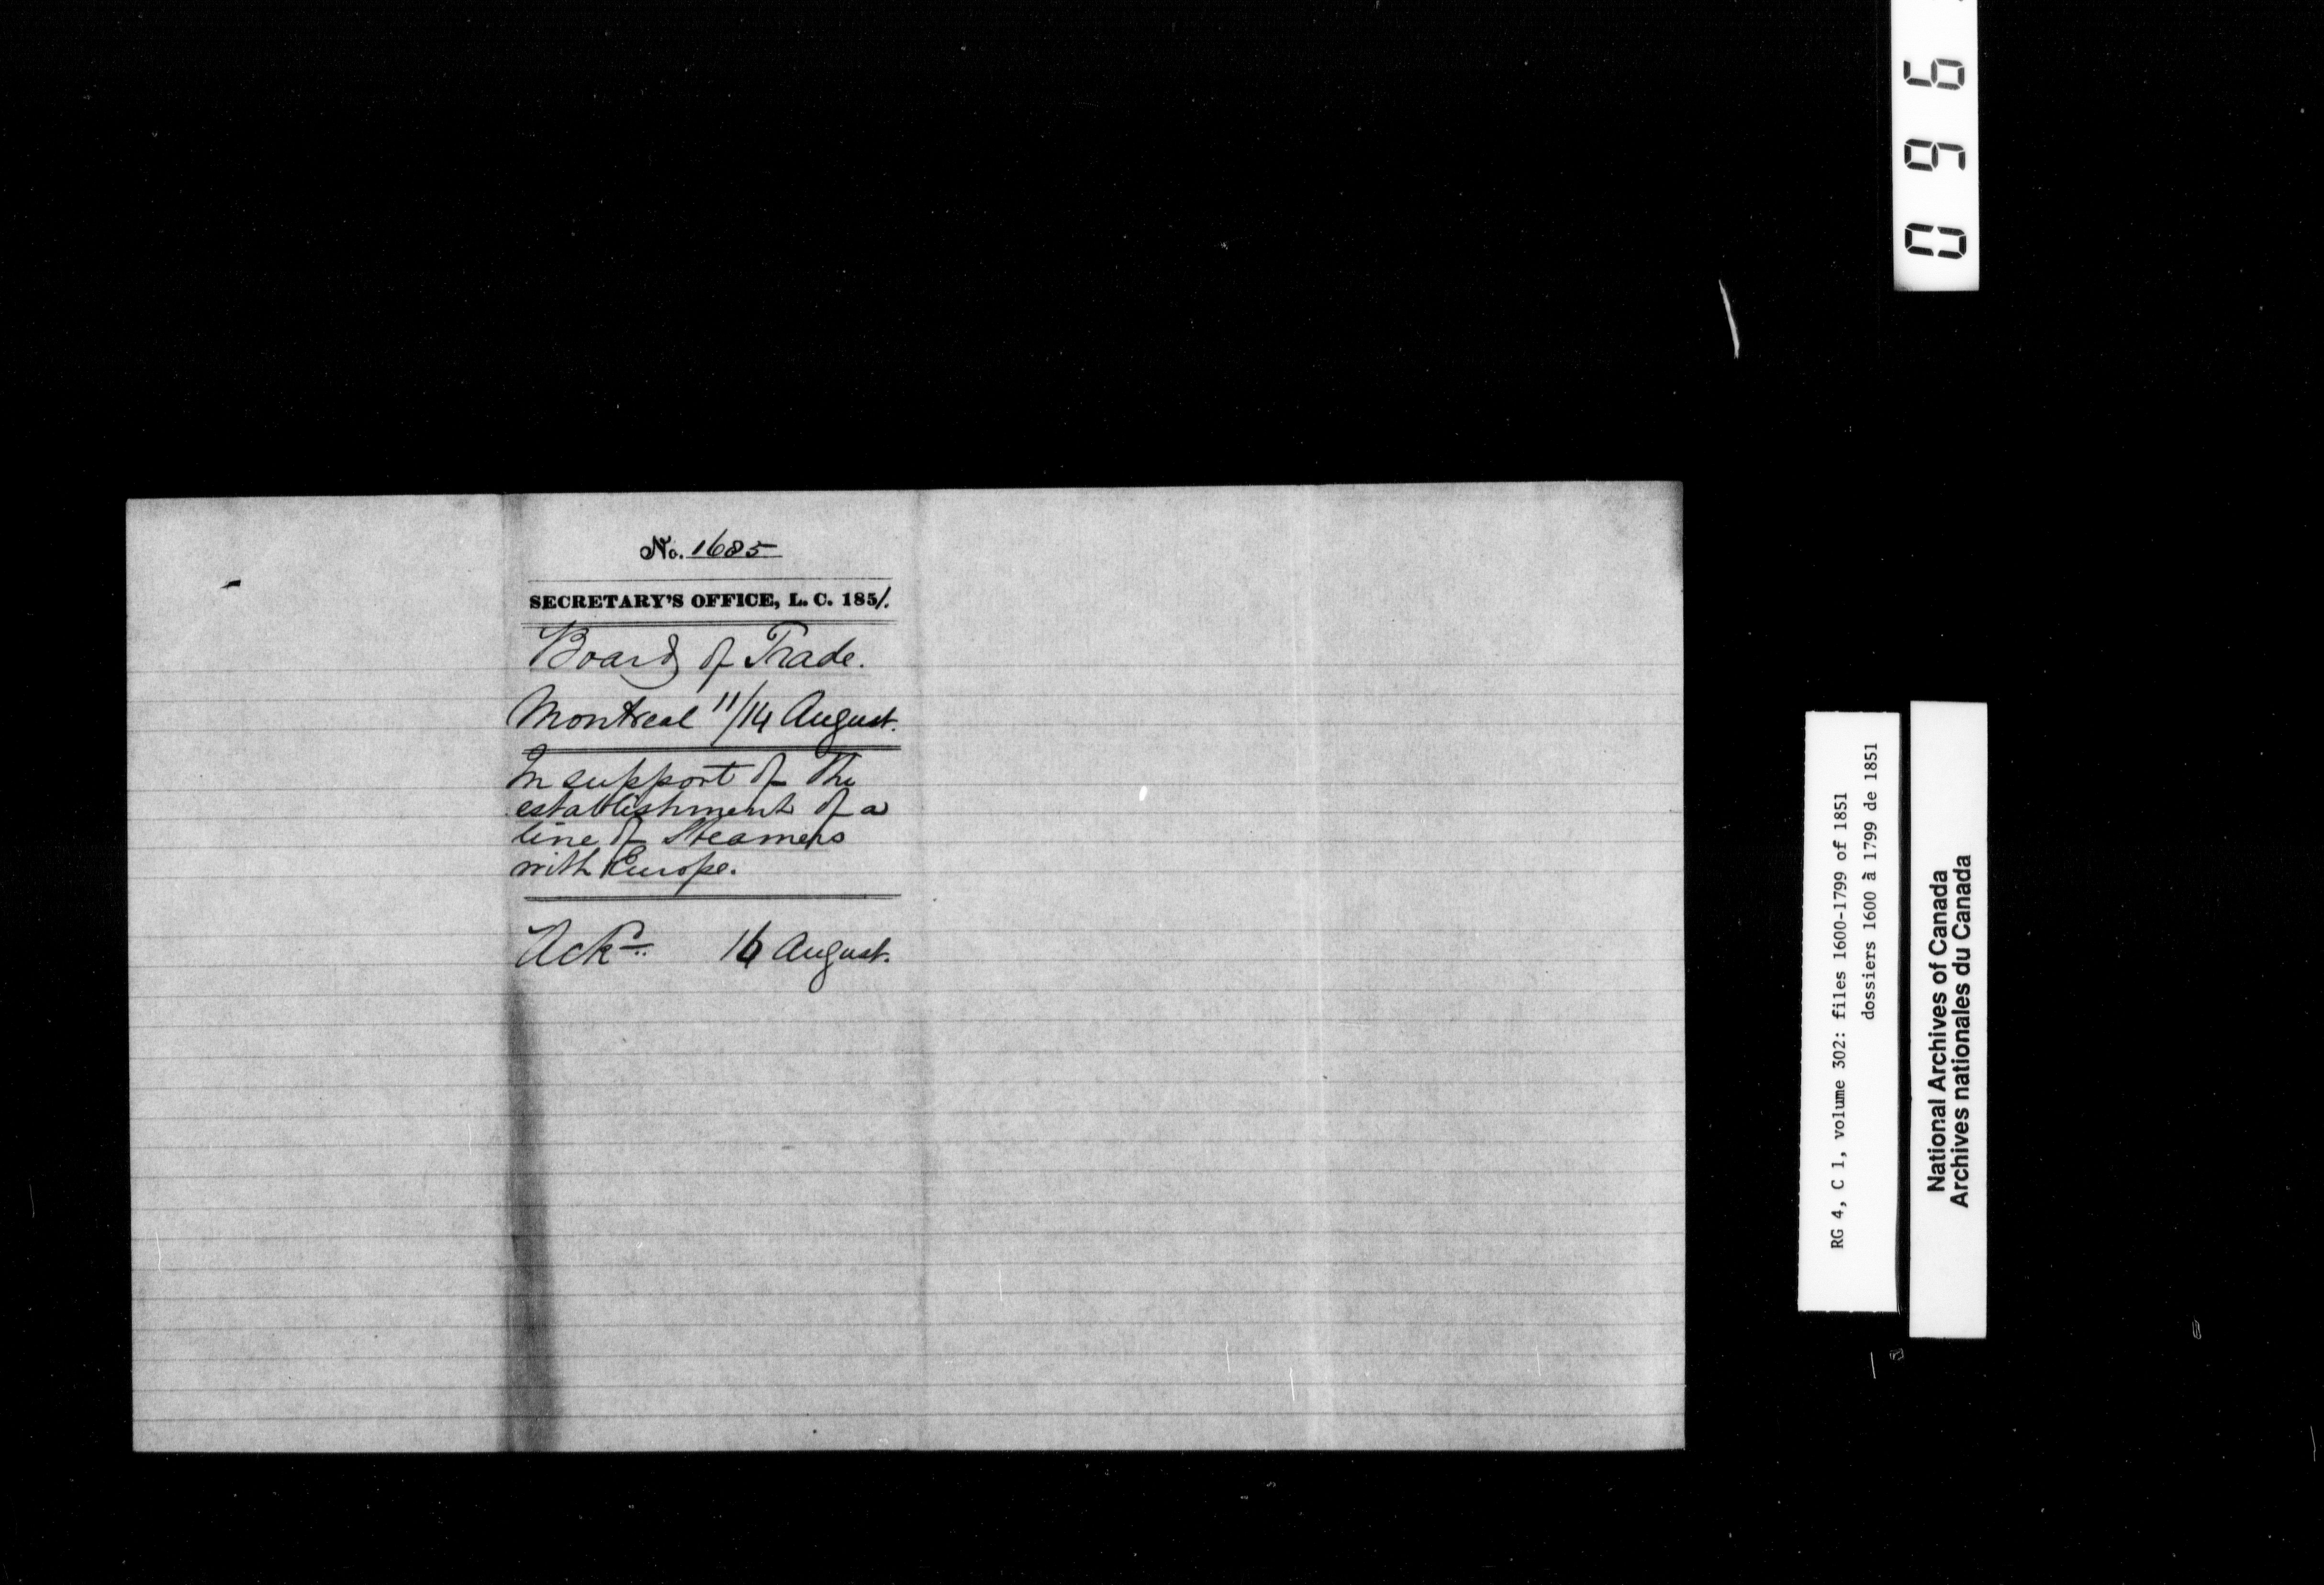 No. 1685
SECRETARY'S OFFICE, L. C. 1851.
Board of Trade.
Montreal 11/14 August.
In support of the
establishment of a
line of Steamers
with Europe.
Ackd 16 August.
096
RG 4, C 1, volume 302: files 1600-1799 of 1851
dossiers 1600 à 1799 de 1851
National Archives of Canada
Archives nationales du Canada